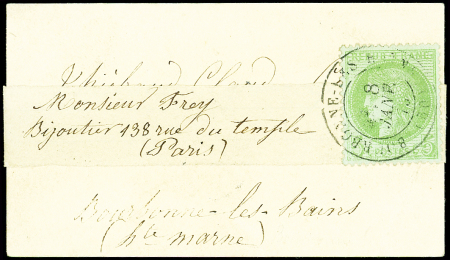 Monsieur Frey
Bijoutier 138 rue du temple
(Paris)
Bourbonne-les-Bains
(hte marne)
8
JANV